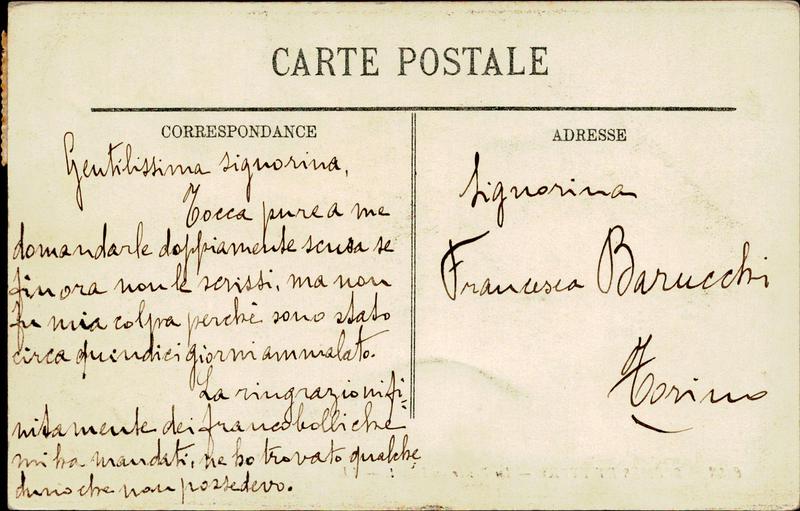 CARTE POSTALE
CORRESPONDANCE
Gentilissima signorina,
Tocca pure a me
domandarle doppiamente scusa se
finora non le scrissi, ma non
fu mia colpa perchè sono stato
circa quindici giorni ammalato.
La ringrazio infi-
nitamente dei francobolli che
mi ha mandati, ne ho trovato qualche
duno che non possedevo.
ADRESSE
Signorina
Francesca Barucchi
Torino